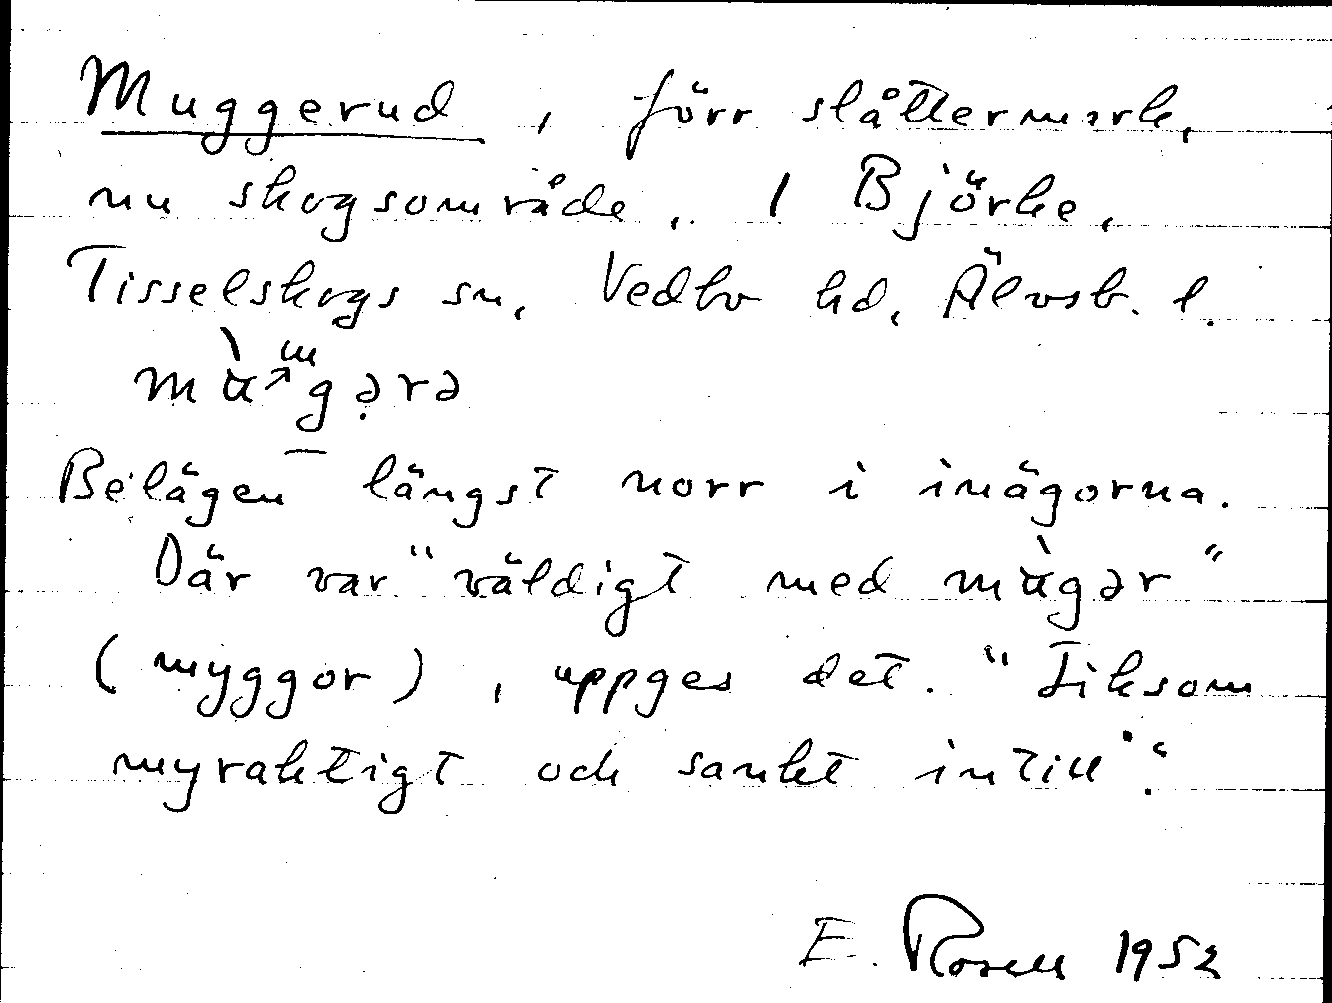 Muggerud, förr slåttermark,
nu skogsområde. I Björke,
Tisselskogs sn, Vedbo hd, Älvsb. l.
Belägen längst norr i inägorna.
Där var "väldigt med mùgər"
(myggor), uppges det. "Liksom
myraktigt och sankt intill".
E. Rosell 1952